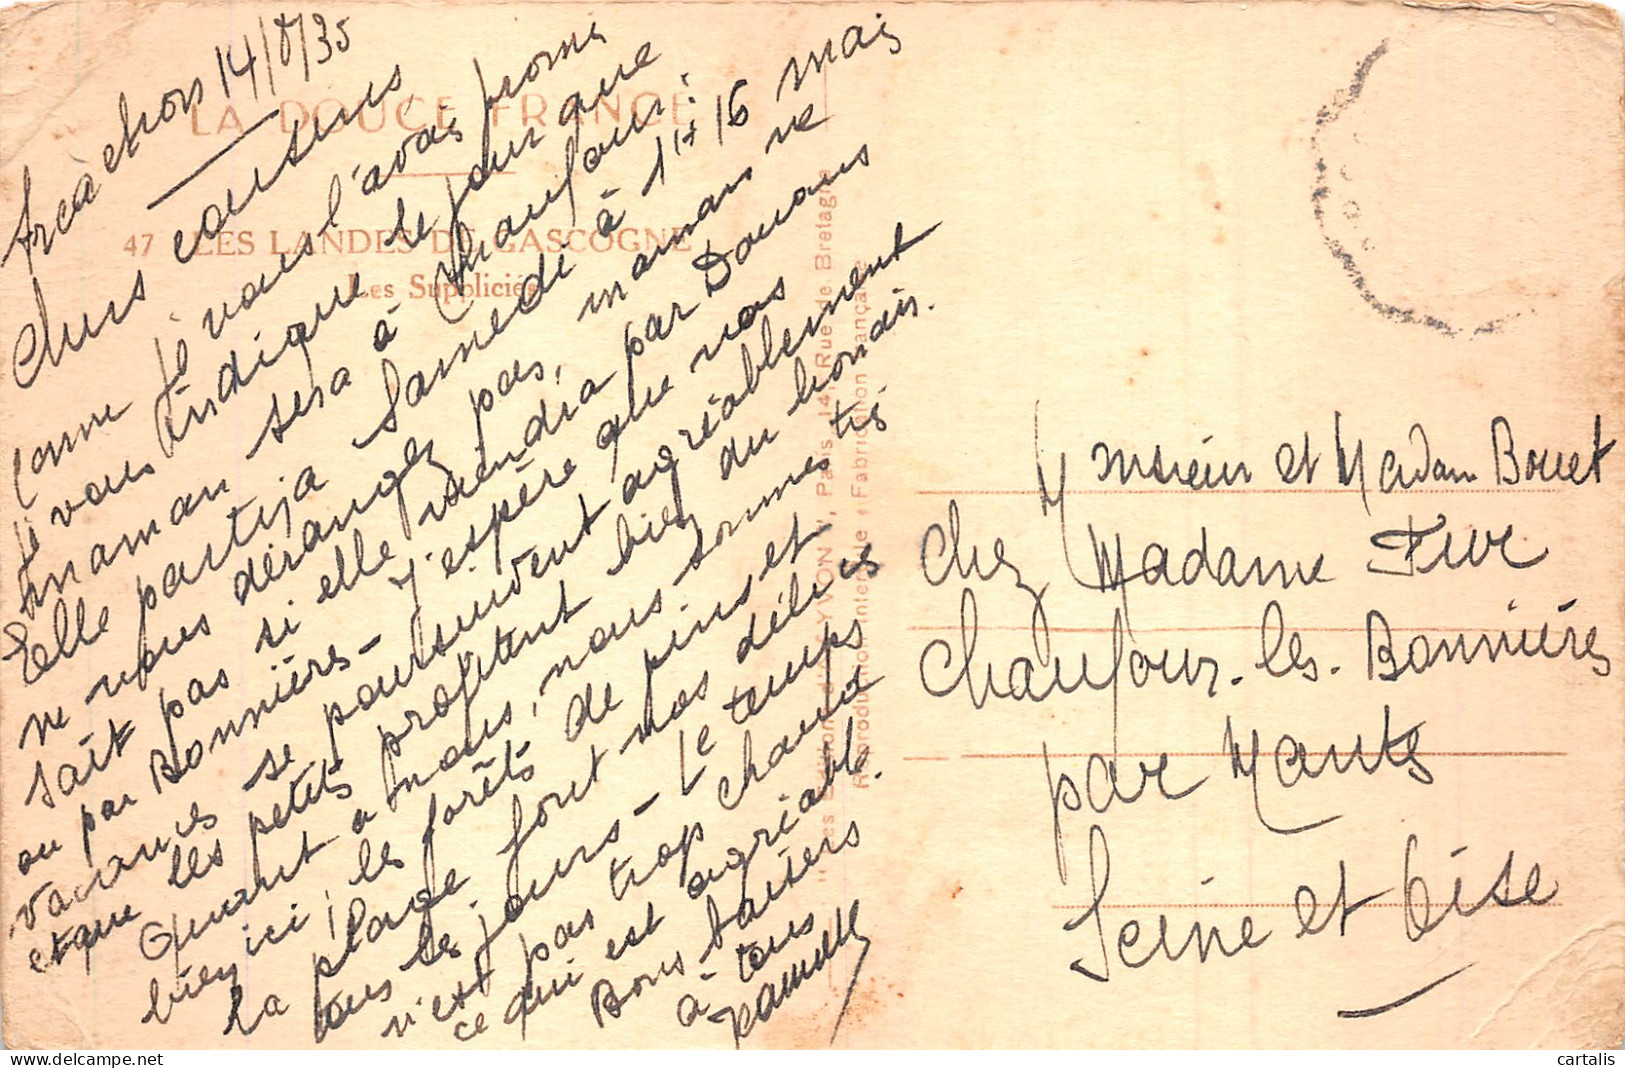 Arcachon 14/8/35
Chers cousins,
Comme je vous l'avais promis
je vous indique le jour que
maman sera à Chaufour:
Elle partira Samedi à 14 16 mais
ne vous dérangez pas, maman ne
sait pas si elle viendra par Douans
ou par Bonnières - J'espère que vos
vacances se poursuivent agréablement
et que les petits profitent bien du bon air.
Quant à nous, nous sommes très
bien ici, les forêts de pins et
la plage font nos délices
tous les jours - Le temps
n'est pas trop chaud
ce qui est agréable.
Bons baisers
à tous
LA DOUCE FRANCE
47 LES LANDES DE GASCOGNE
Les Suppliciés
"Les Editions d'Art YVON", Paris, 14, Rue de Bretagne
Reproduction Interdite, Fabrication Française
Monsieur et Madam Bouet
chez Madame Fur
Chaufour-les-Bonnières
par Mantes
Seine et Oise
cartalis